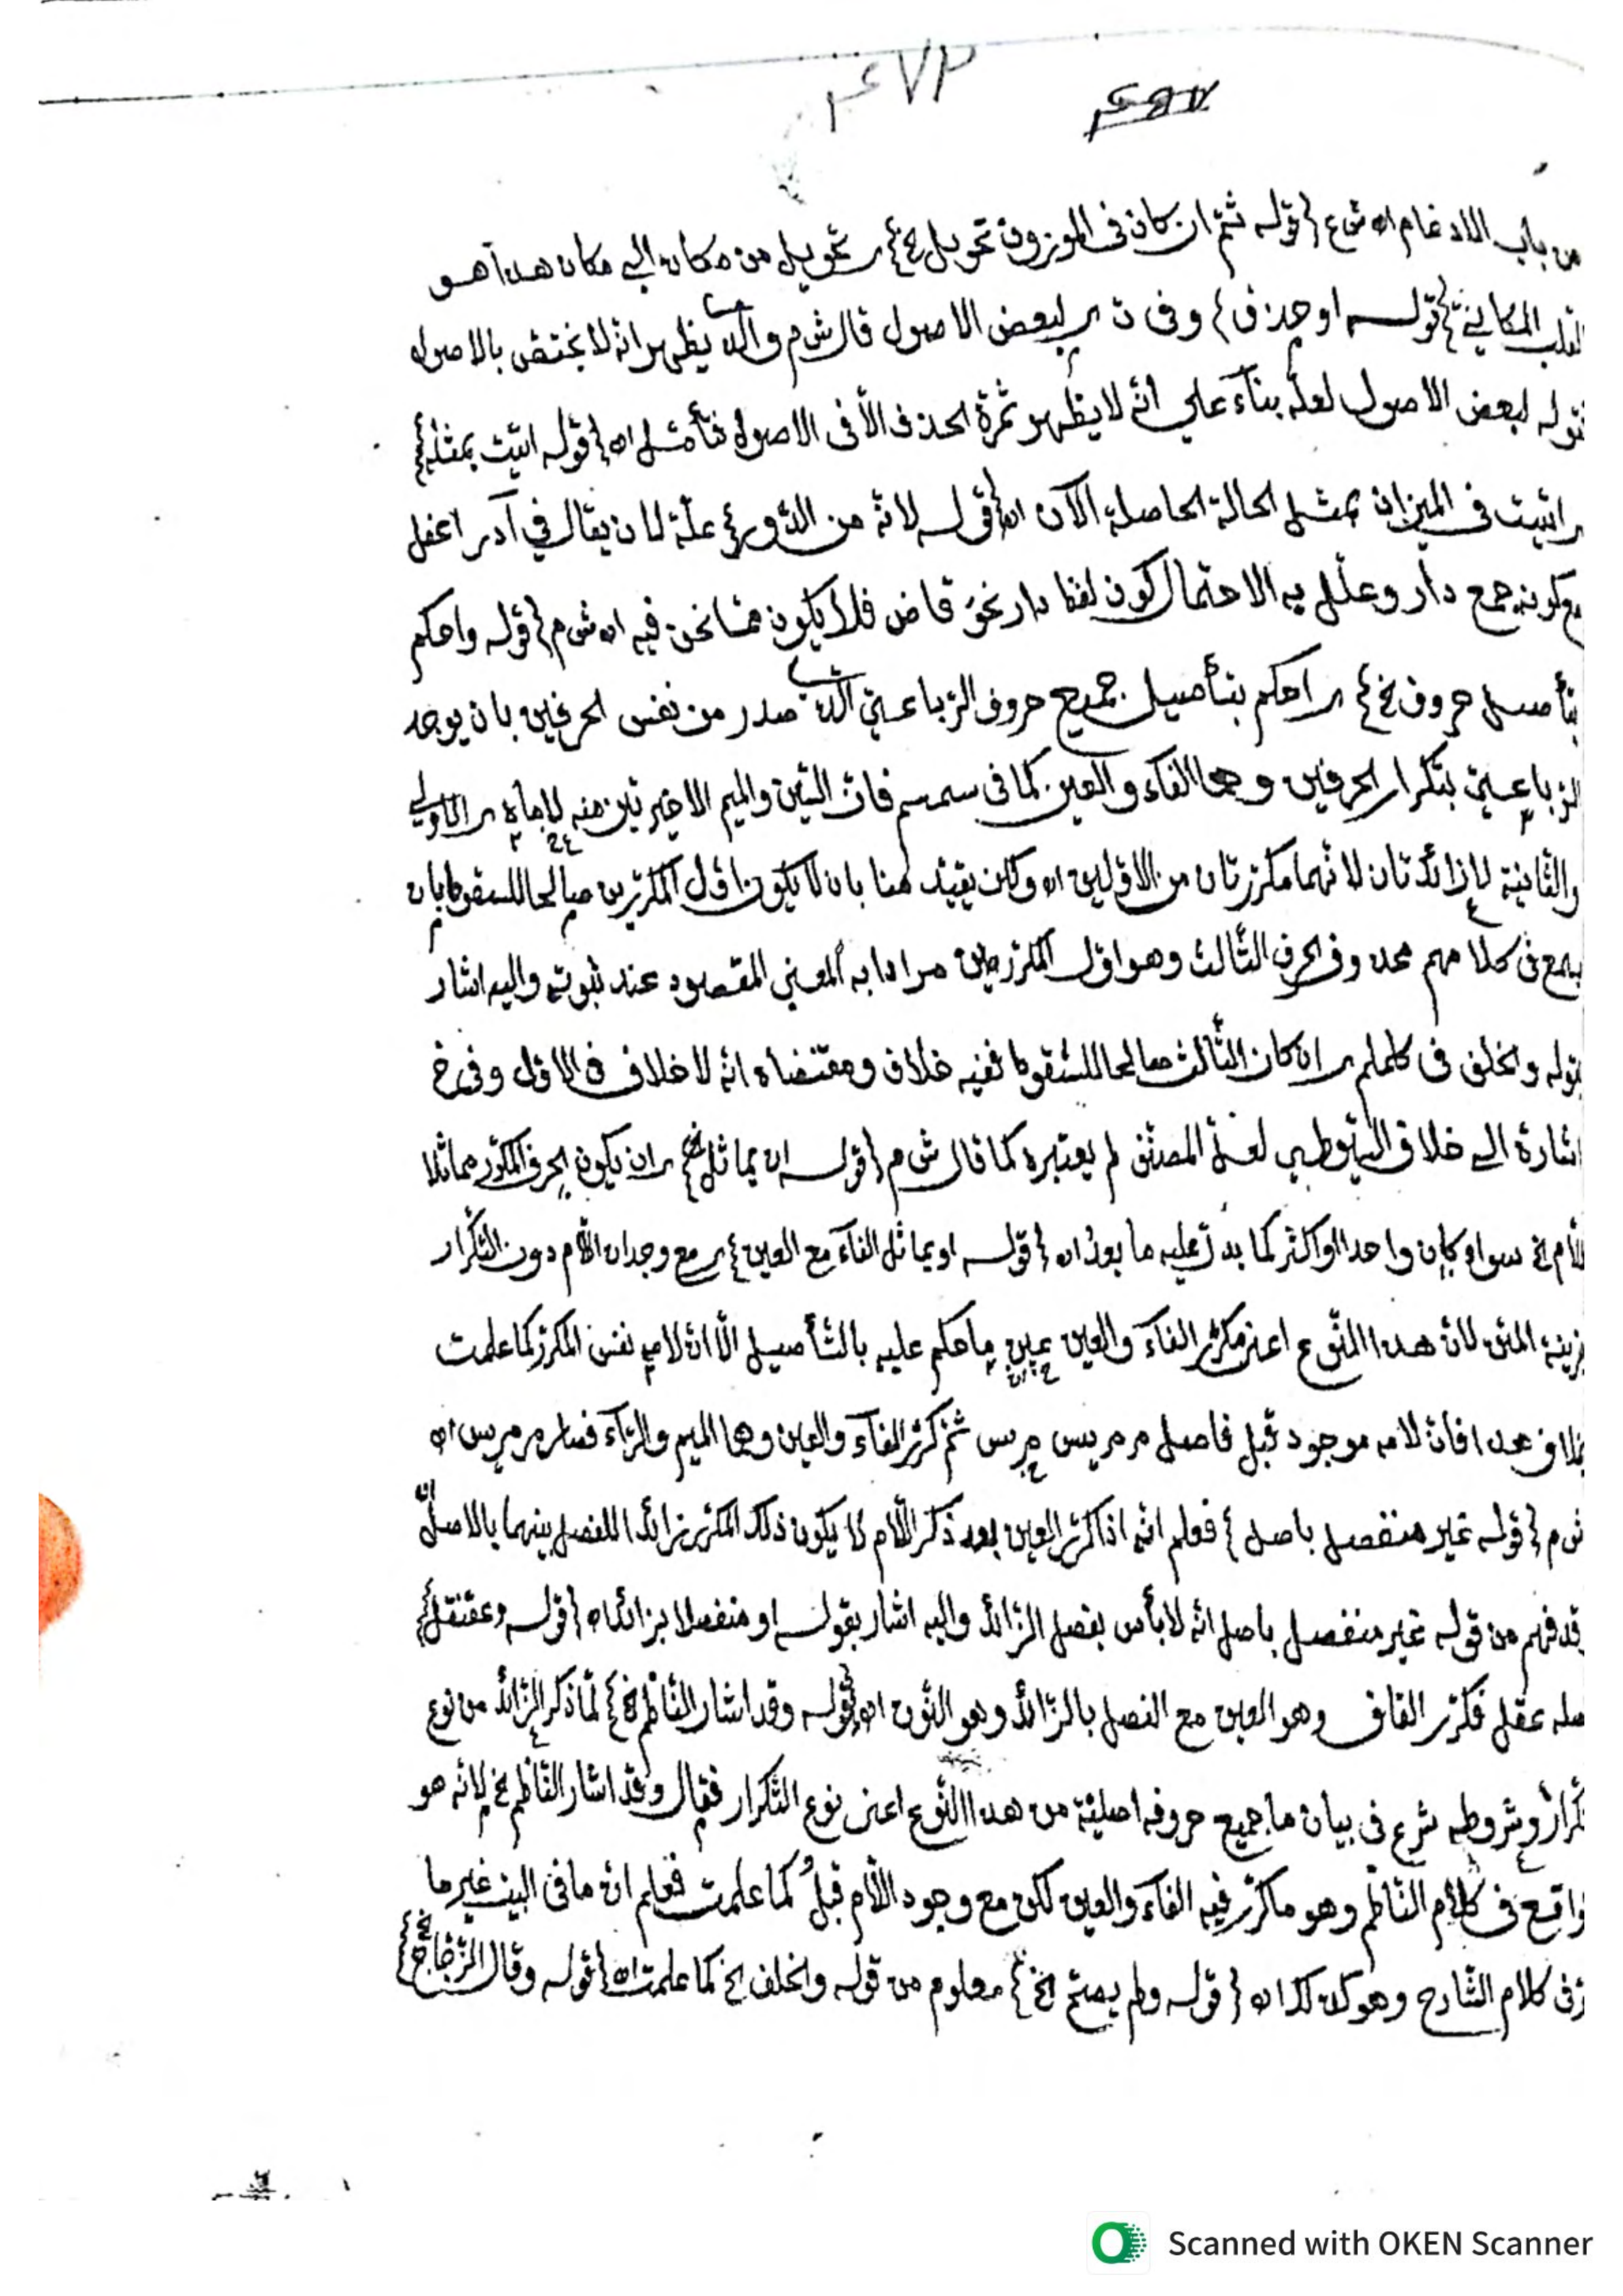 ٤٧٣
من باب الادغام اه ش ع {قوله ثمّ ان كان فى الموزون تحويل الخ} اى تحويل من مكان الى مكان هذا هو
القلب المكانىّ {قوله او حذف} وفى ن اى لبعض الاصول قال ش م والّذى يظهر انه لا يختصّ بالاصول
قوله لبعض الاصول لعلّه بناءً على انّه لا يظهر ثمرة الحذف الّا فى الاصول فتأمّل اه {قوله اتيت بمثله}
اى اتيت فى الميزان بمثل الحالة الحاصلة الآن اه {قوله لانّه من الدّور} علّة لان يقال فى آدر اعفل
وكونه جمع دار وعلّل به الاحتمال كون لفظ دار نحو قاض فلا يكون ممّا نحن فيه اه ش م {قوله واحكم
بتأصيل حروف الخ} اى احكم بتأصيل جميع حروف الرّباعىّ الّذى صدر من نفس الحرفين بان يوجد
الرّباعىّ بتكرار الحرفين وهما الفاء والعين كما فى سمسم فانّ السّين والميم الاخيرتين منه
والثّانية زائدتان لانّهما مكرّرتان من الاوّلين اه ولكن يقيّد هنا بان لا يكون اوّل المكرّرين صالحا للسقوط بان
يسمع فى كلامهم محذوف الحرف الثّالث وهو اوّل المكرّرين مرادا به المعنى المقصود عند ثبوته واليه اشار
بقوله والخلف فى كلملم اى ان كان الثّالث صالحا للسّقوط ففيه خلاف ومقتضاه انّه لا خلاف فى الاوّل وفى خ
اشارة الى خلاف السّيوطى لعلّ المصنّف لم يعتبره كما قال ش م {قوله ان يماثل الخ} اى ان يكون الحرف المكرّر مماثلا
للّام الخ سواء كان واحدا او اكثر كما يدلّ عليه ما بعد اه {قوله او يماثل الفاء مع العين} اى مع وجدان اللّام دون التّكرار
بقرينة المتن لانّ هذا النّوع اعنى مكرّر الفاء والعين عين ما حكم عليه بالتّأصيل الّا انّ لامه نفس المكرّر كما علمت
بخلاف هذا فانّ لامه موجود قبل فاصل مرمريس مريس ثمّ كرّر الفاء والعين وهما الميم والرّاء فصار مرمريس اه
ش م {قوله غير منفصل باصل} فعلم انّه اذا كرّر العين بعد ذكر اللّام لا يكون ذلك المكرّر زائدا للفصل بينهما بالاصل
قد فهم من قوله غير منفصل باصل انّه لا بأس بفصل الزّائد واليه اشار بقوله او منفصلا بزائد اه {قوله وعقنقل}
اصله عقل فكرّر القاف وهو العين مع الفصل بالزّائد وهو النّون اه {قوله وقد اشار النّاظم الخ} لمّا ذكر الزّائد من نوع
تكرار وشروطه شرع فى بيان ما جميع حروفه اصليّة من هذا النّوع اعنى نوع التّكرار فقال وقد اشار النّاظم الخ لانّه هو
واقع فى كلام النّاظم وهو ما كرّر فيه الفاء والعين لكن مع وجود اللّام قبل كما علمت فعلم ان ما فى البيت غير ما
فى كلام الشّارح وهو كذلك اه {قوله ولم يصحّ الخ} معلوم من قوله والخلف الخ كما علمت اه {قوله وقال الزّجّاج الخ}
Scanned with OKEN Scanner